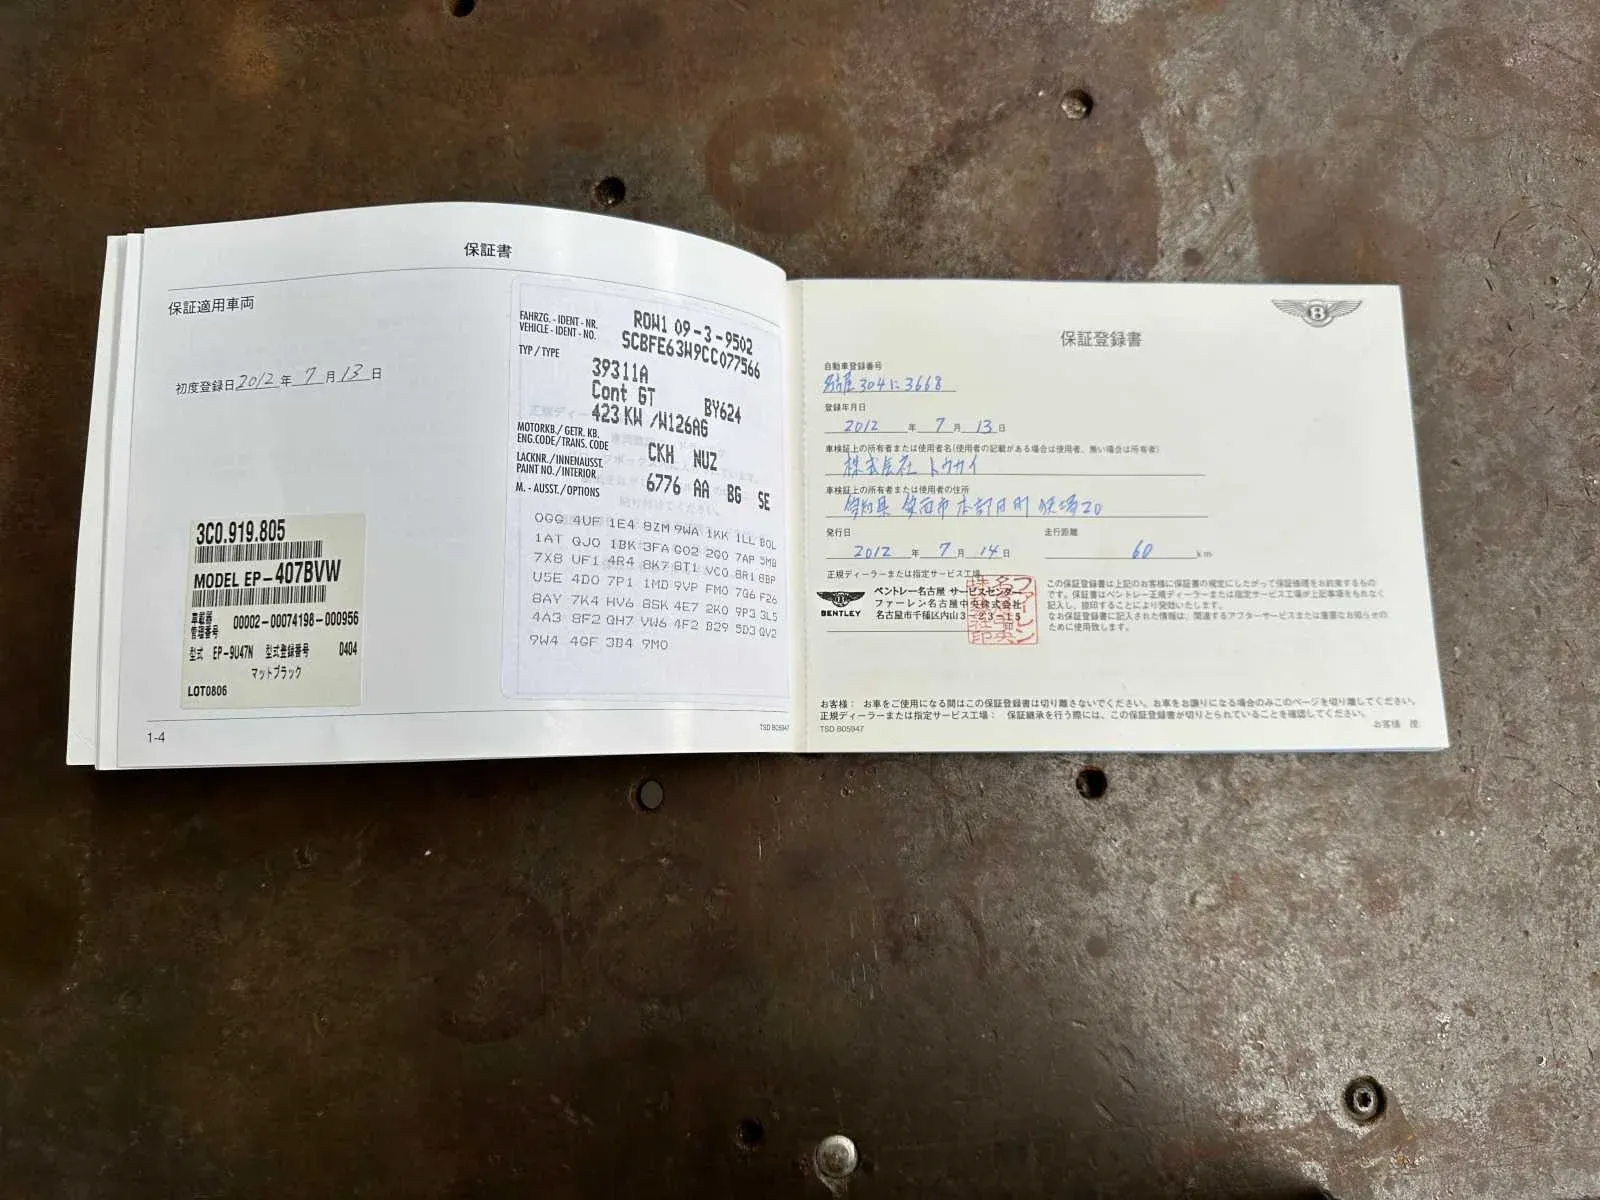 保証書
保証適用車両
初度登録日 2012 年 7 月 13 日
3C0.919.805
MODEL EP-407BVW
車載器
管理番号 00002-00074198-000956
型式 EP-9U47N 型式登録番号 0404
マットブラック
LOT0806
FAHRZG.-IDENT-NR. ROW1 09-3-9502
VEHICLE-IDENT-NO. SCBFE63W9CC077566
TYP/TYPE 39311A
Cont GT BY624
423 KW /W126AG
MOTORKB./GETR. KB.
ENG.CODE/TRANS. CODE CKH NUZ
LACKNR./INNENAUSST.
PAINT NO./INTERIOR 6776 AA BG SE
M.-AUSST./OPTIONS
0GG 4UF 1E4 8ZM 9WA 1KK 1LL B0L
1AT QJ0 1BK 3FA G02 2G0 7AP 5MB
7X8 UF1 4R4 8K7 8T1 VC0 8R1 8BP
U5E 4D0 7P1 1MD 9VP FM0 7G6 F26
8AY 7K4 HV6 8SK 4E7 2K0 9P3 3L5
4A3 8F2 QH7 VW6 4F2 B29 5D3 QV2
9W4 4GF 3B4 9M0
1-4
TSD B05947
B
保証登録書
自動車登録番号
名古屋 304 に 3668
登録年月日
2012 年 7 月 13 日
車検証上の所有者または使用者名(使用者の記載がある場合は使用者、無い場合は所有者)
株式会社 トウカイ
車検証上の所有者または使用者の住所
発行日 走行距離
2012 年 7 月 14 日 60 km
正規ディーラーまたは指定サービス工場
BENTLEY
ベントレー名古屋 サービスセンター
ファーレン名古屋中央株式会社
名古屋市千種区内山3-23-15
この保証登録書は上記のお客様に保証書の規定にしたがって保証修理をお約束するもの
です。保証書はベントレー正規ディーラーまたは指定サービス工場が上記事項をもれなく
記入し、捺印することにより発効いたします。
なお保証登録書に記入された情報は、関連するアフターサービスまたは重要なお知らせの
ために使用致します。
お客様： お車をご使用になる間はこの保証登録書は切り離さないでください。お車をお譲りになる場合のみこのページを切り離してください。
正規ディーラーまたは指定サービス工場： 保証継承を行う際には、この保証登録書が切りとられていることを確認してください。
お客様 控
TSD B05947